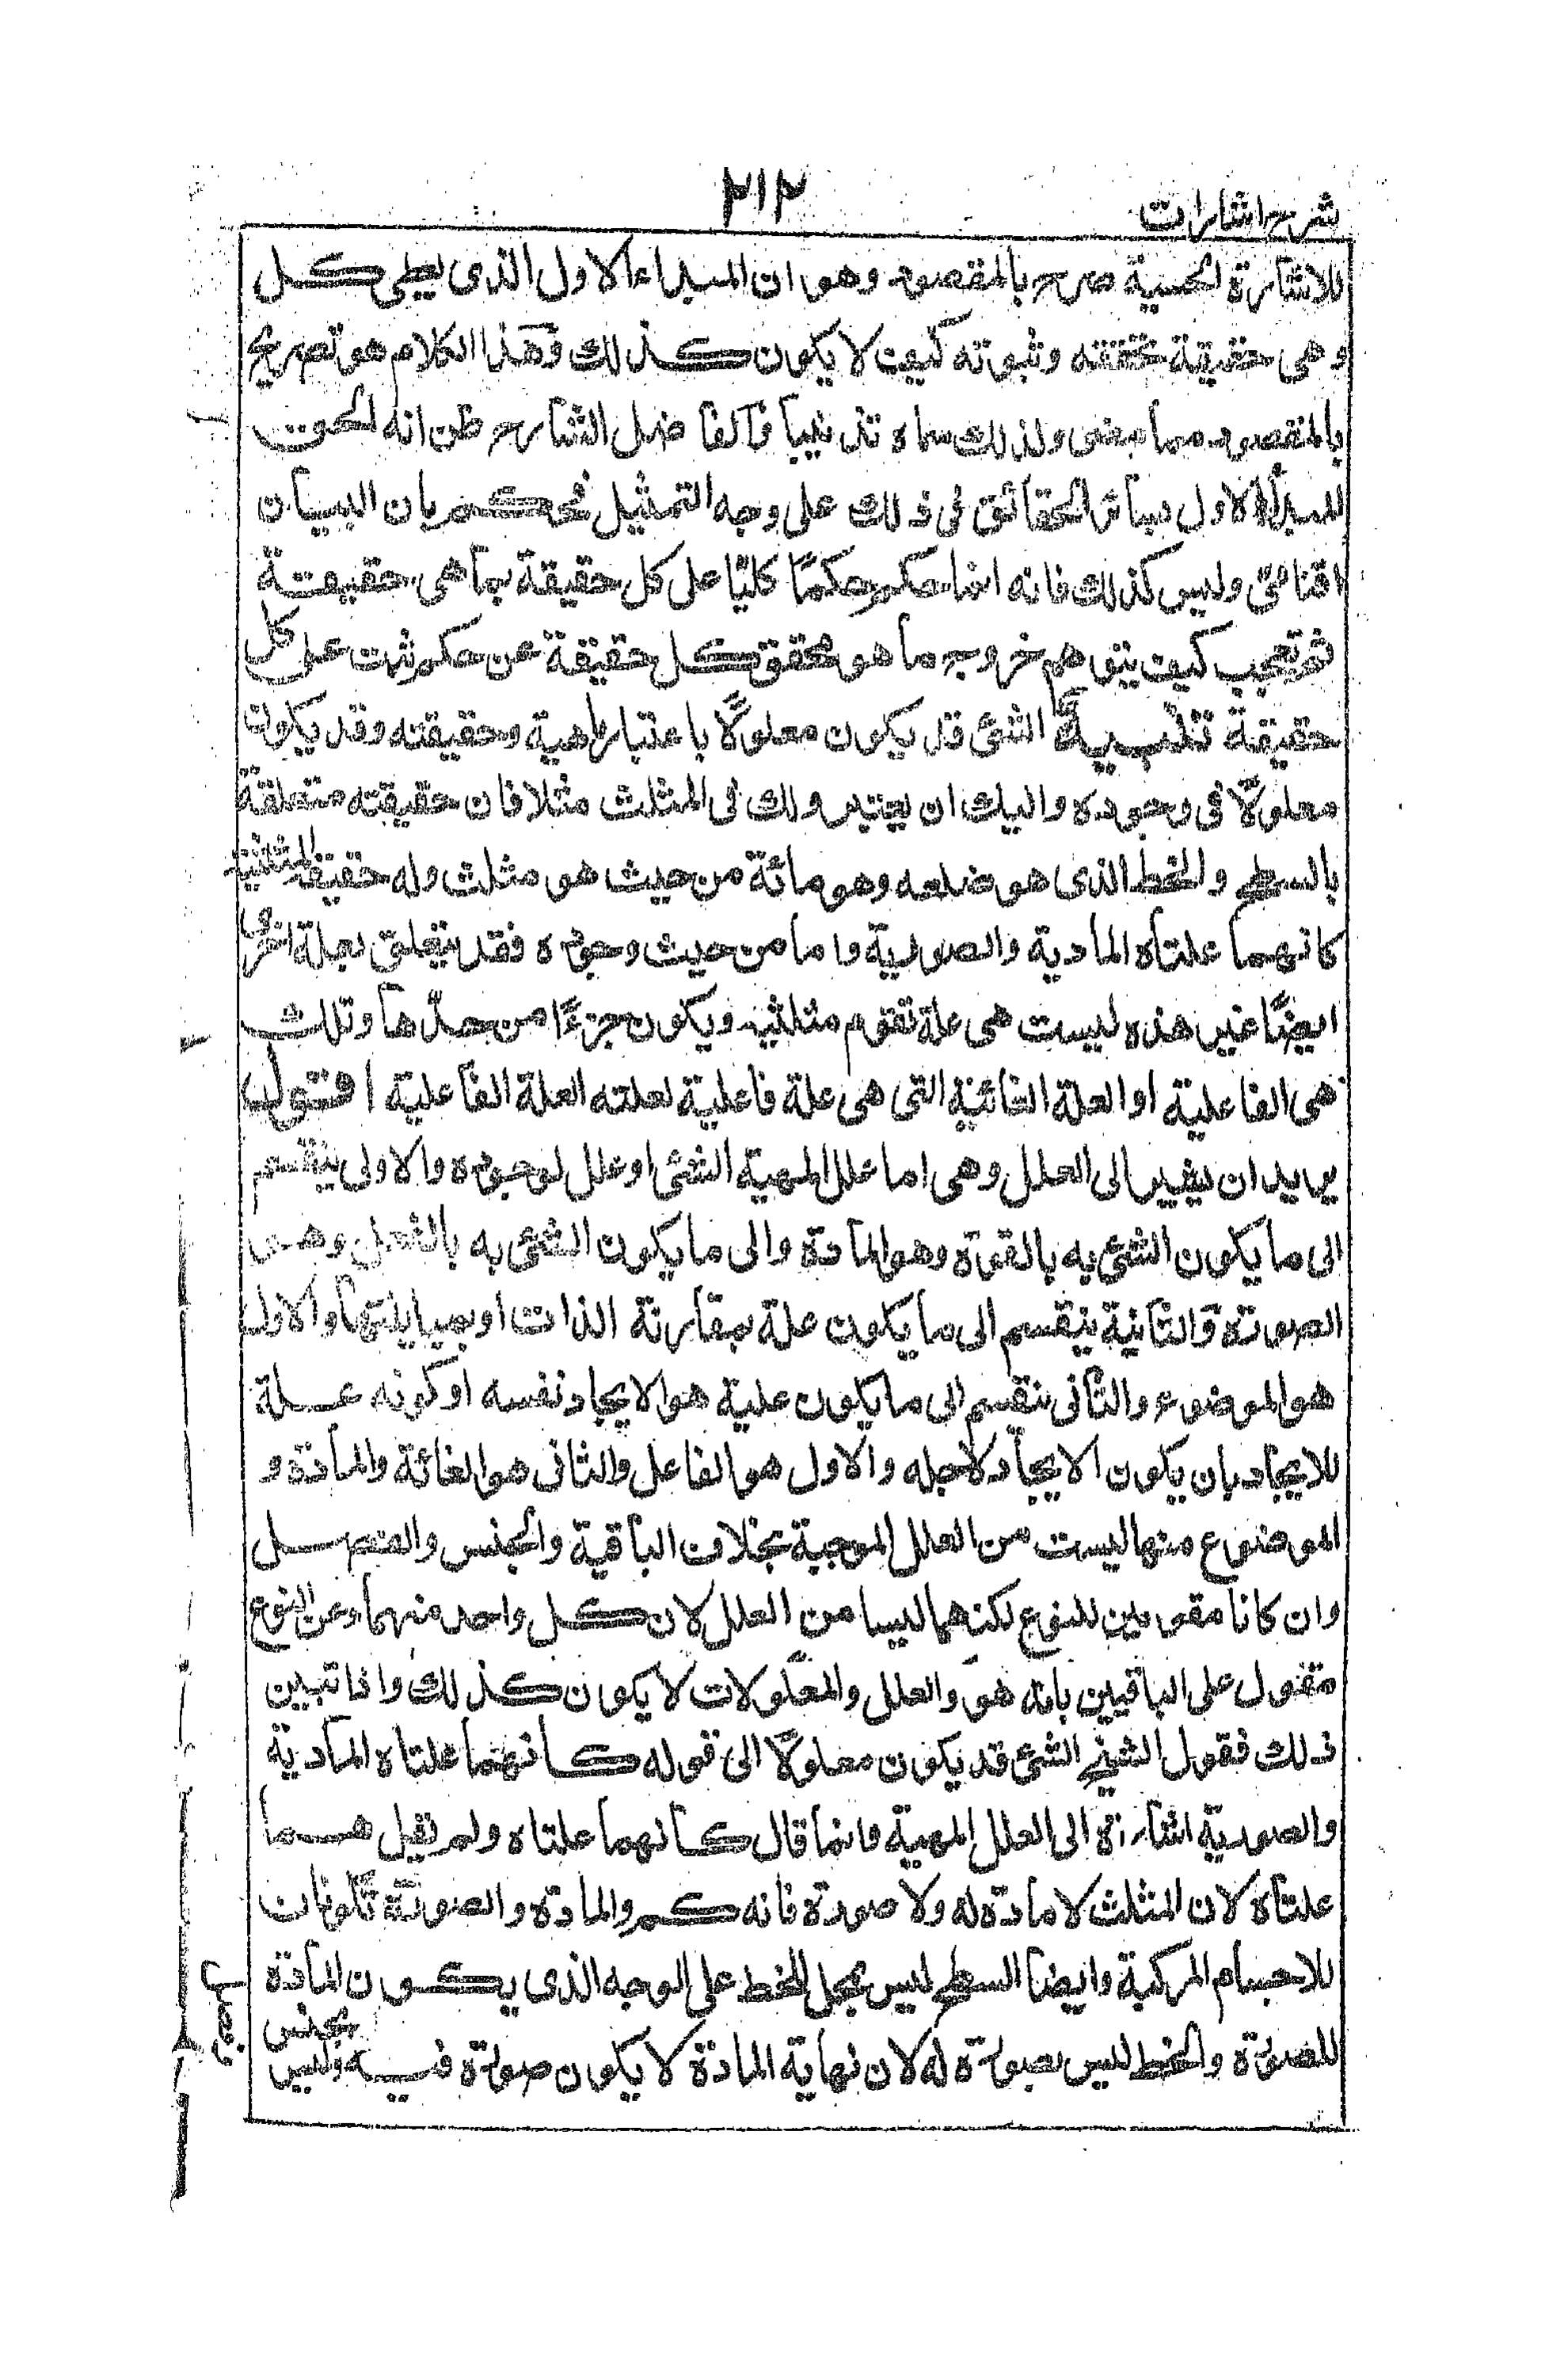 شرح اشارات
٢١٢
للاشارة الحسية صرح بالمقصود وهو ان المبداء الاول الذى يعطى كل
وهى حقيقة تحققه وثبوته كيف لا يكون كذلك وهذا الكلام هو تصريح
بالمقصود مما مضى ولذلك سماه تذنيبا فالفاضل الشارح ظن انه الحق
المبدأ الاول بسائر الحقائق فى ذلك على وجه التمثيل فحكم بان البيان
اقناعى وليس كذلك فانه انما حكم حكمًا كليًا على كل حقيقة بما هى حقيقة
ثم تعجب كيف يتوهم خروج ما هو محقق كل حقيقة عن حكم ثبت على كل
حقيقة تنبيهٌ الشئ قد يكون معلولًا باعتبار ماهية وحقيقته وقد يكون
معلولًا فى وجوده واليك ان يعتبر ذلك فى المثلث مثلا فان حقيقته متعلقة
بالسطح والخط الذى هو ضلعه وهو مائة من حيث هو مثلث وله حقيقة المثلثية
كانهما علتاه المادية والصورية واما من حيث وجوده فقد يتعلق بعلة اخرى
ايضًا غير هذه ليست هى علة تقوم مثلثيه ويكون جزءًا من حدّها وتلك
هى الفاعلية او العلة الغائية التى هى علة فاعلية لعلته العلة الفاعلية اقول
يريد ان يشير الى العلل وهى اما علل المهية الشئ او علل لوجوده والاولى ينقسم
الى ما يكون الشئ به بالقوة وهو المادة والى ما يكون الشئ به بالفعل وهى
الصورة والثانية ينقسم الى ما يكون علة بمقارنة الذات او بمباينتها والاول
هو الموضوع والثانى ينقسم الى ما يكون علية هو الايجاد نفسه او كونه علة
للايجاد بان يكون الايجاد لاجله والاول هو الفاعل والثانى هو الغائة والمادة و
الموضوع منها ليست من العلل الموجبة بخلاف الباقية والجنس والفصل
وان كانا مقومين للنوع لكنهما ليسا من العلل لان كل واحد منهما وعن النوع
مقول على الباقيين بانه هو والعلل والمعلولات لا يكون كذلك واذا تبين
ذلك فقول الشيخ الشئ قد يكون معلولًا الى قوله كانهما علتاه المادية
والصورية اشارة الى العلل المهية وانما قال كانهما علتاه ولم يقل هما
علتاه لان المثلث لا مادة له ولا صورة فانه كم والمادة والصورة تكونان
للاجسام المركبة وايضا السطح ليس بمحل للخط على الوجه الذى يكون المادة
للصورة والخط ليس بصورة له لان نهاية المادة لا يكون صورة فيه وليس
بجنس